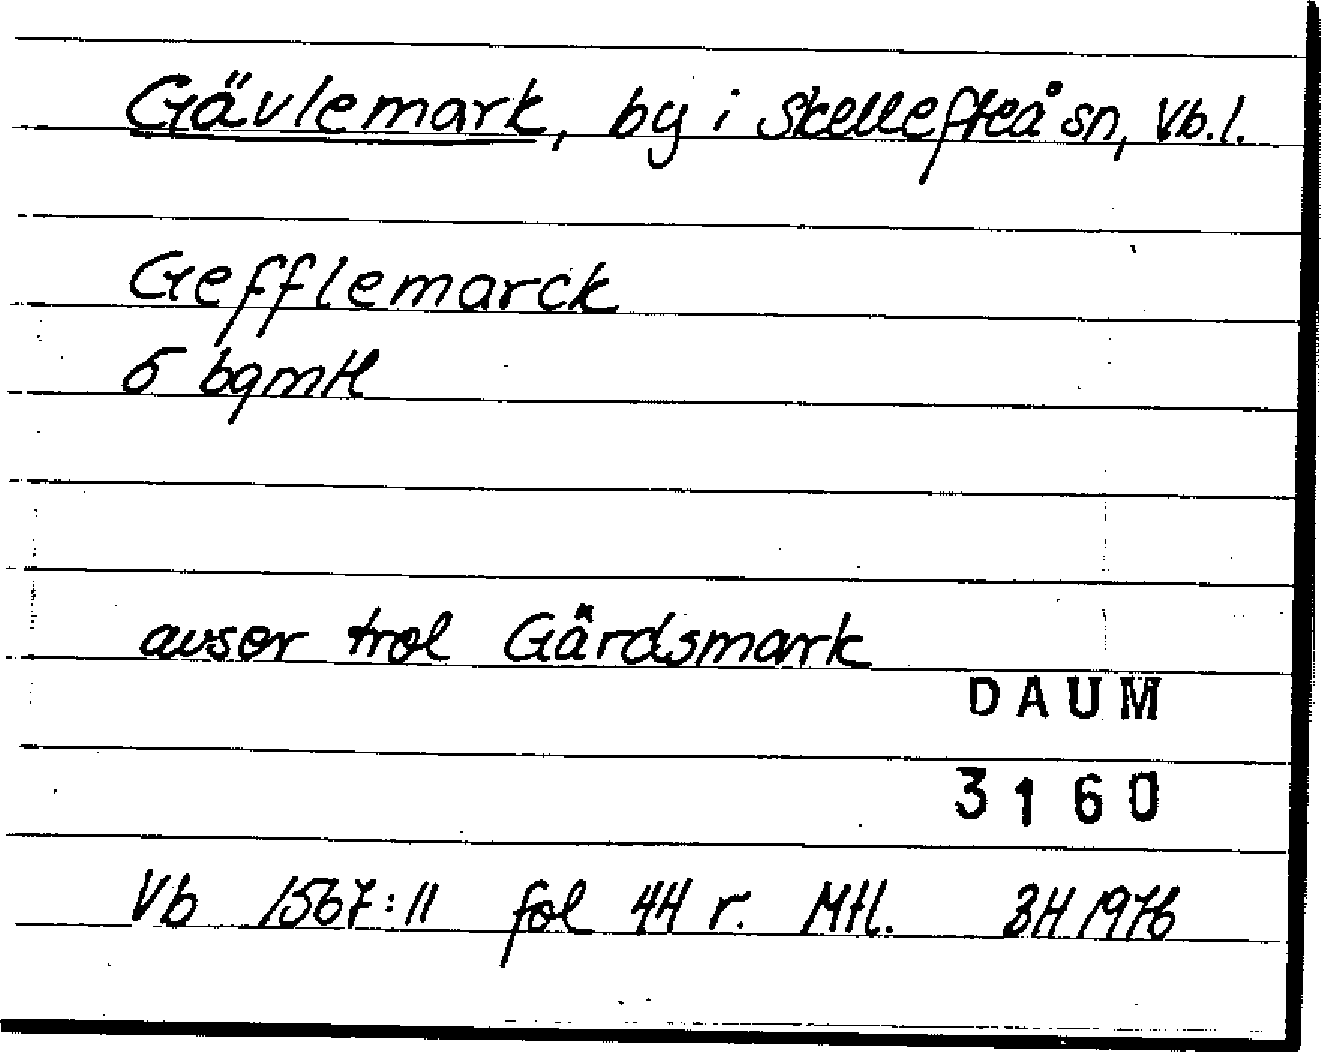 Gävlemark, by i Skellefteå sn, Vb.l.
Gefflemarck
5 bgmtl
avser trol Gärdsmark
DAUM
3160
Vb 1567:11 fol 44 r. Mtl. BH 1976